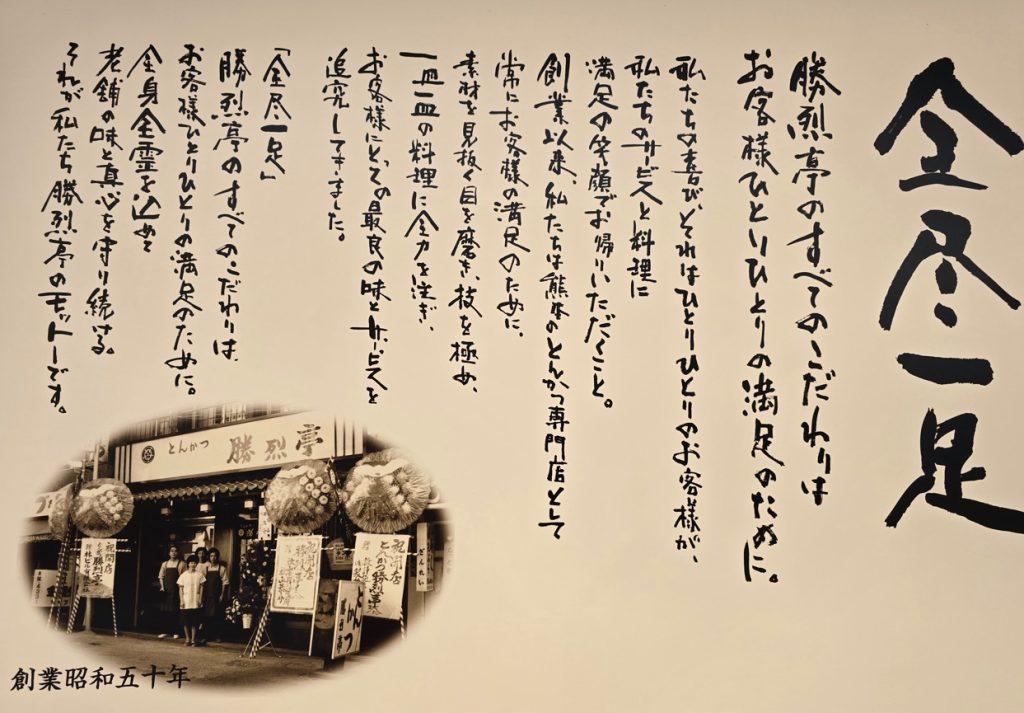 全尽一足
勝烈亭のすべてのこだわりは
お客様ひとりひとりの満足のために。
私たちの喜び、それはひとりひとりのお客様が、
私たちのサービスと料理に
満足の笑顔でお帰りいただくこと。
創業以来、私たちは熊本のとんかつ専門店として
常にお客様の満足のために、
素材を見抜く目を磨き、技を極め、
一皿一皿の料理に全力を注ぎ、
お客様にとっての最良の味とサービスを
追究してきました。
「全尽一足」
勝烈亭のすべてのこだわりは、
お客様ひとりひとりの満足のために。
全身全霊を込めて
老舗の味と真心を守り続ける。
それが私たち勝烈亭のモットーです。
とんかつ 勝烈亭
祝開店
勝烈亭
祝開店
祝開店
とんかつ勝烈亭
とんかつ
ぎんれい
創業昭和五十年